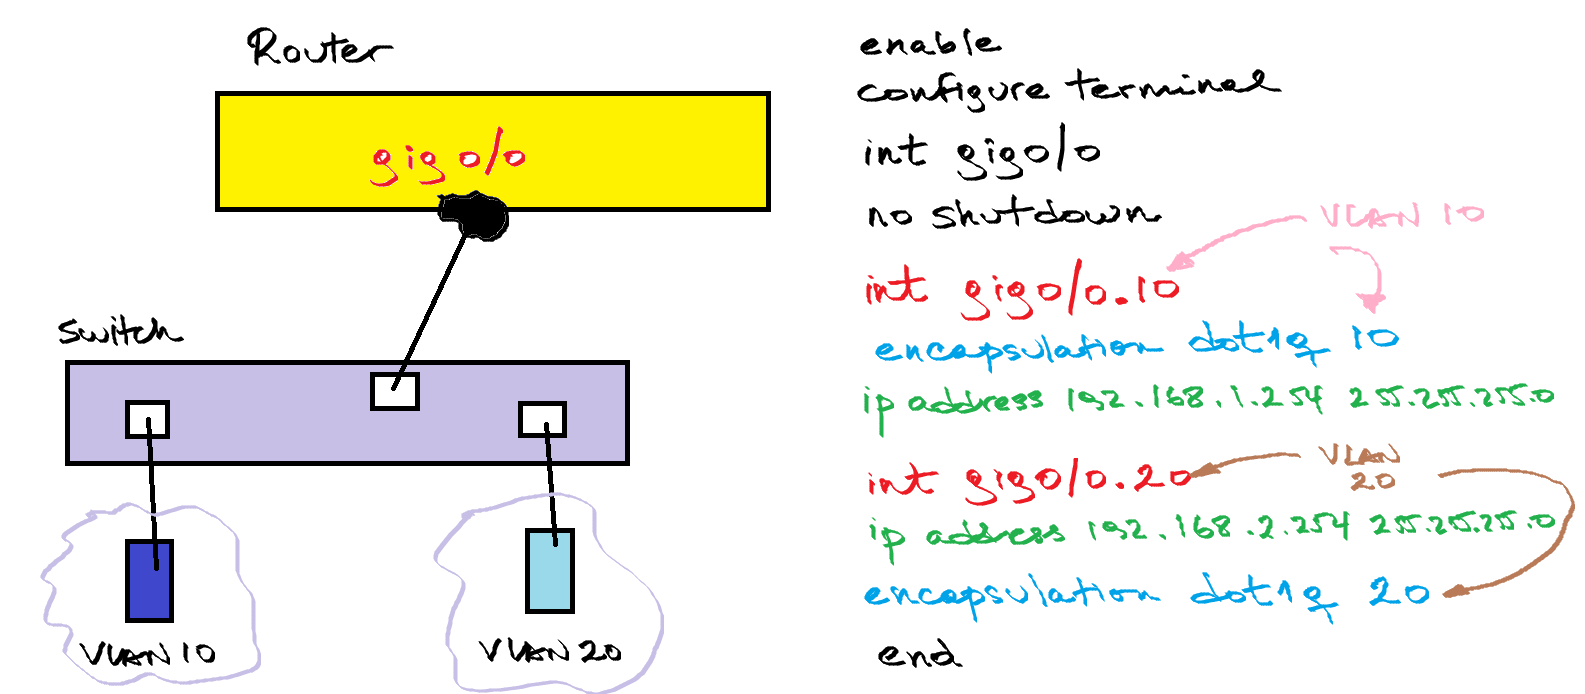 Router
gig 0/0
Switch
VLAN 10
VLAN 20
enable
configure terminal
int gig0/0
no shutdown
VLAN 10
int gig0/0.10
encapsulation dot1q 10
ip address 192.168.1.254 255.255.255.0
int gig0/0.20
VLAN
20
ip address 192.168.2.254 255.255.255.0
encapsulation dot1q 20
end